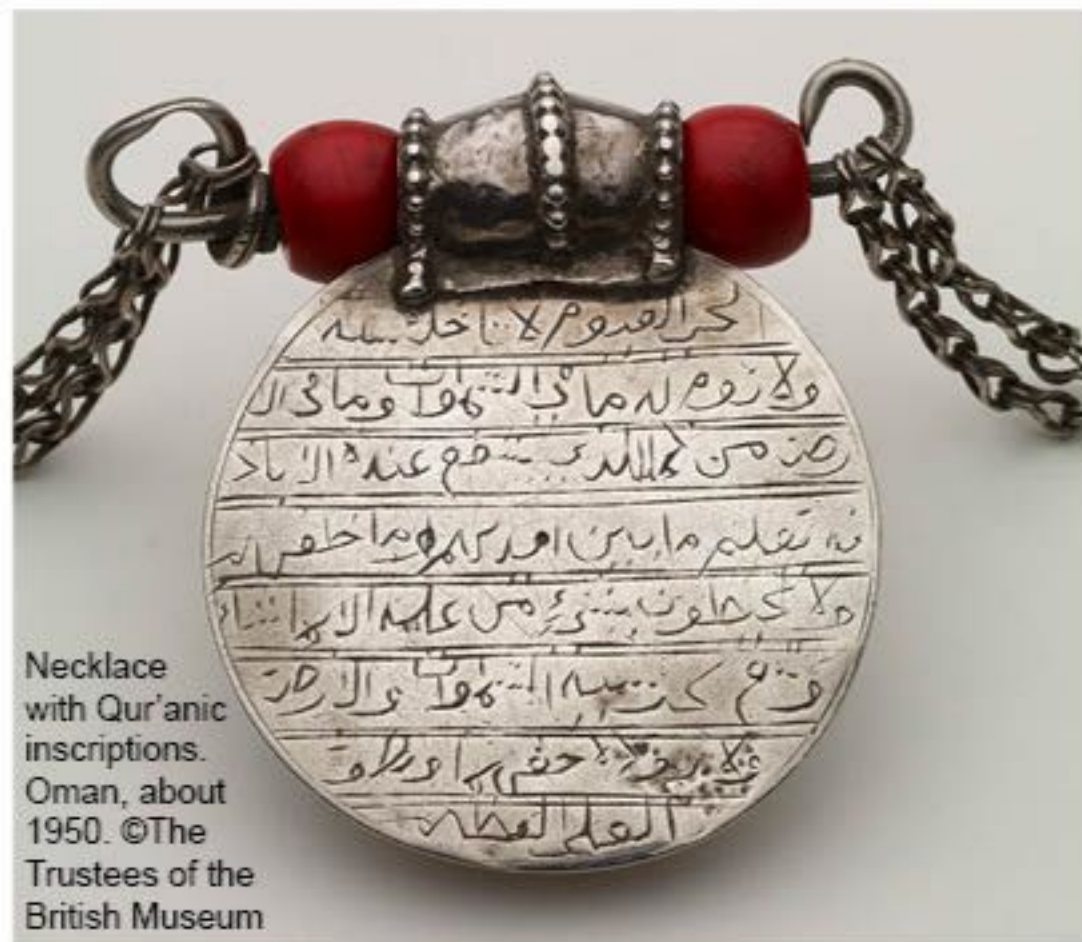 الحي القيوم لا تاخذه سنة
ولا نوم له ما في السموات وما في الا
رض من ذا الذي يشفع عنده الا باذ
نه يعلم ما بين ايديهم وما خلفهم
ولا يحيطون بشيء من علمه الا بما شاء
وسع كرسيه السموات والارض
حفظهما وهو
العلي العظيم
Necklace
with Qur’anic
inscriptions.
Oman, about
1950. ©The
Trustees of the
British Museum